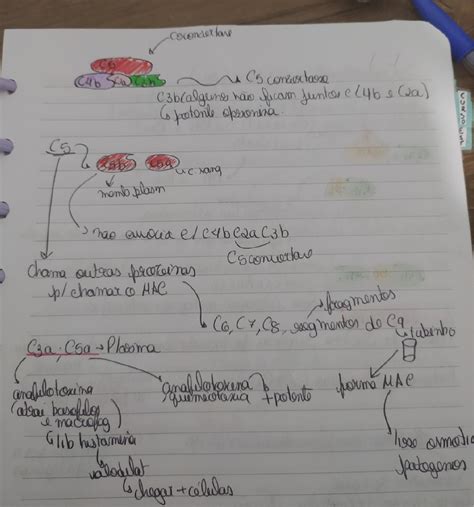 C4b
C2a
C3b
→ C5 convertase
C3b (alguns não ficam juntos c/ C4b e C2a)
↳ potente opsonina
C5
C5b
C5a
memb plasm
não associa c/ C4bC2aC3b
C5 convertase
chama outras proteínas
p/ chamar o MAC
→ fragmentos
C6, C7, C8, segmentos do C9
→ tubinho
C3a; C5a → Plasma
anafilotoxina
(atrai basófilos
e macrófag)
↳ lib histamina
↳ vasodilat
↳ chegar + células
anafilotoxina
quimiotaxia
+ potente
forma MAC
lise osmótica
patógenos